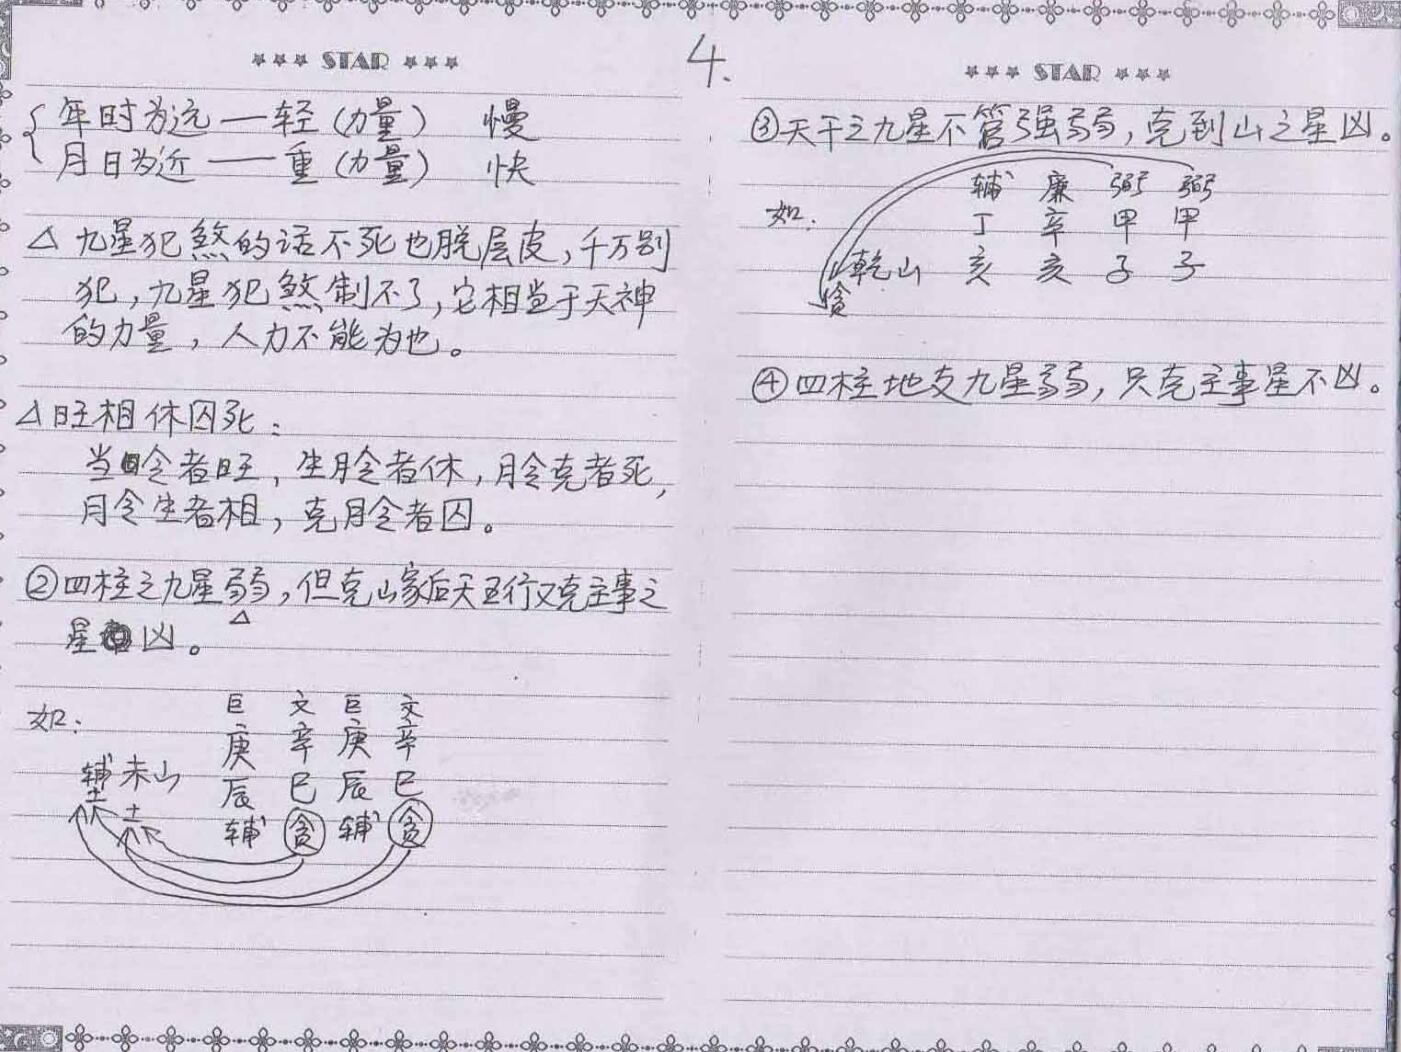 STAR
年时为远 — 轻（力量） 慢
月日为近 — 重（力量） 快
△ 九星犯煞的话不死也脱层皮，千万别
犯，九星犯煞制不了，它相当于天神
的力量，人力不能为也。
△旺相休囚死：
当令者旺，生月令者休，月令克者死，
月令生者相，克月令者囚。
②四柱之九星弱，但克山家后天五行又克主事之
△
星凶。
如：
巨 文 巨 文
庚 辛 庚 辛
辅 未山 辰 巳 辰 巳
土 土 辅 贪 辅 贪
4.
STAR
③天干之九星不管强弱，克到山之星凶。
辅 廉 弼 弼
如： 丁 辛 甲 甲
乾山 亥 亥 子 子
贪
④四柱地支九星弱，只克主事星不凶。